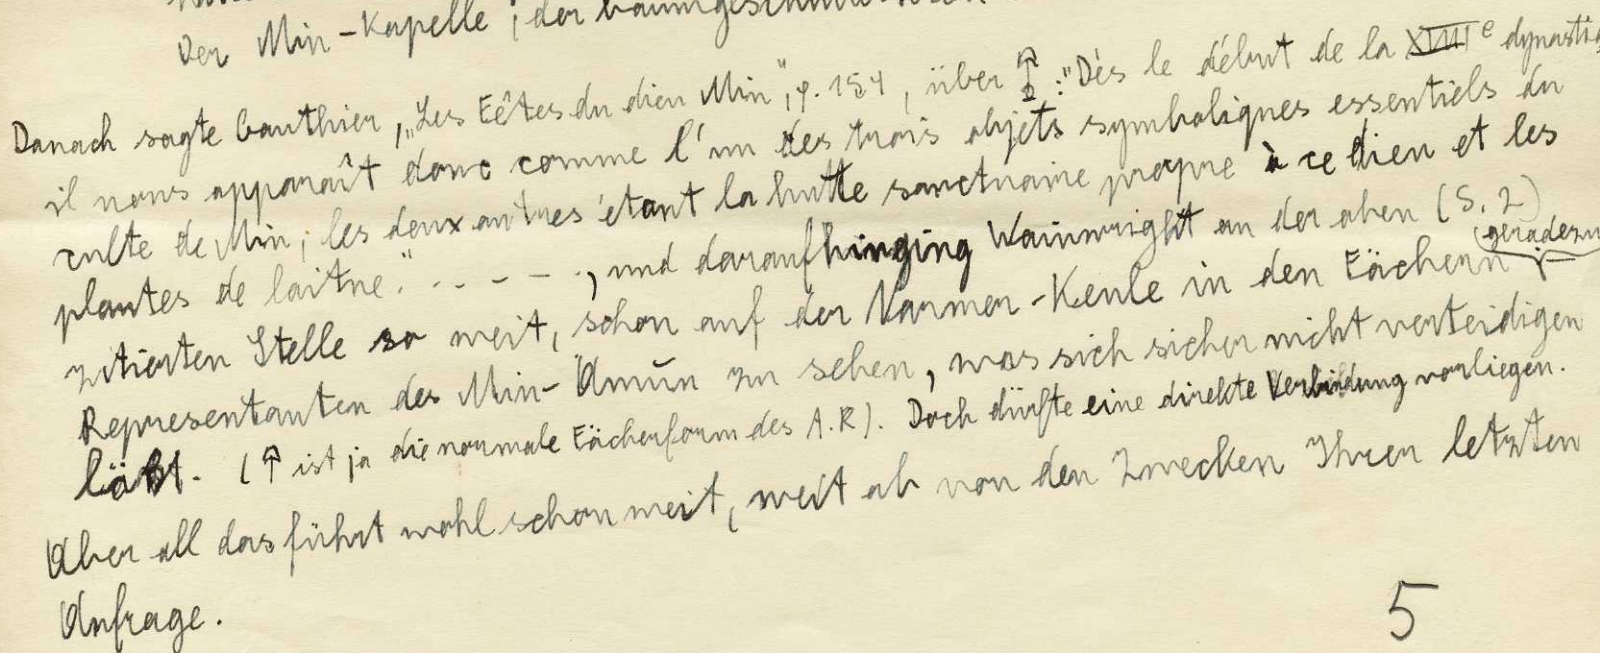 der Min-Kapelle; der
Danach sagte Gauthier, „Les Fêtes du dieu Min", p. 154, über : "Dès le début de la XVIIIe dynastie
il nous apparaît donc comme l'un des trois objets symboliques essentiels du
culte de Min, les deux autres étant la hutte sanctuaire propre à ce dieu et les
plantes de laitue." .. - - ., und daraufhin ging Wainwright an der oben (S. 2)
zitierten Stelle so weit, schon auf der Narmer-Keule in den Fächern geradezu
Representanten des Min-Amūn zu sehen, was sich sicher nicht verteidigen
läßt. ( ist ja die normale Fächerform des A.R). Doch dürfte eine direkte Verbindung vorliegen.
Aber all das führt wohl schon weit, weit ab von den Zwecken Ihrer letzten
Anfrage.
5